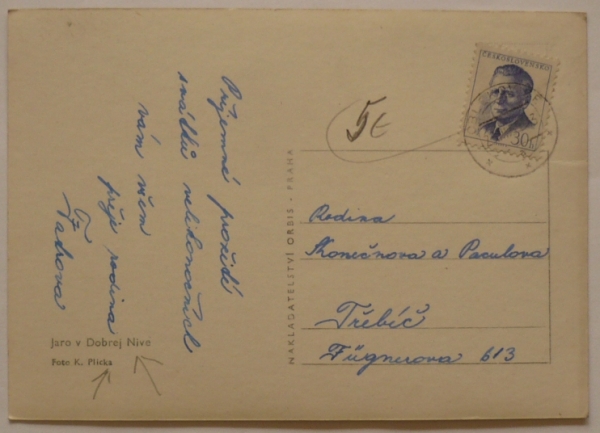 Příjemné prožití
svátků velikonočních
vám všem
přeje rodina
Jaro v Dobrej Nive
Foto K. Plicka
NAKLADATELSTVÍ ORBIS - PRAHA
ČESKOSLOVENSKO
30h
5€
Rodina
Konečnova a Paculova
Třebíč
Fügnerova 613